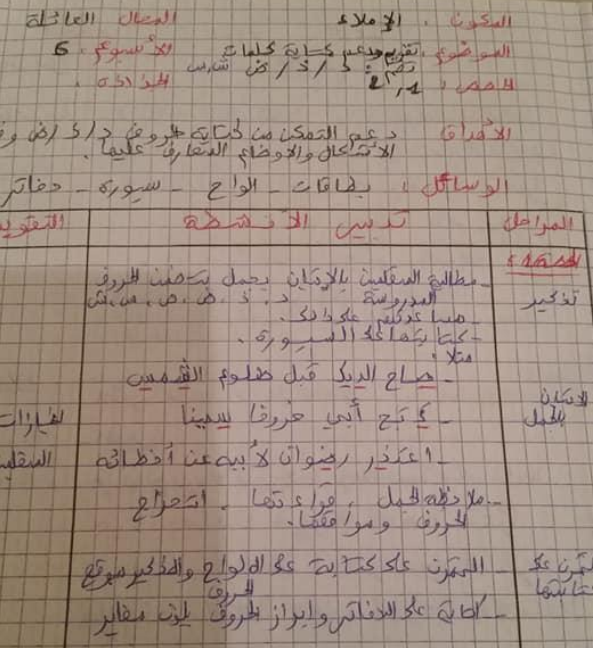 المكون : الإملاء المجال العائلة
الموضوع : تقويم ودعم كتابة كلمات الأسبوع : 6
تضم : د / ذ / ض / ص / س
الحصص : 1 , 2 الجذاذة :
الأهداف دعم التمكن من كتابة الحروف د / ذ / ض وفق
الأشكال والأوضاع المتعارف عليها .
الوسائل : بطاقات - الواح - سبورة - دفاتر
المراحل تدبير الأنشطة التقويم
الحصة 1
تذكير
- مطالبة المتعلمين بالإتيان بجمل تتضمن الحروف
المدروسة د . ذ . ض . ص . س . ش
- مساعدتهم على ذلك .
- كتابتها على السبورة .
مثلا :
- صاح الديك قبل طلوع الشمس
الإتيان
بالجمل
- ذبح أبي خروفا سمينا
- اعتذر رضوان لأبيه عن أخطائه
- ملاحظة الجمل . قراءتها . استخراج
الحروف ومواقعها .
التمرن على
كتابتها
- التمرن على كتابة على الألواح والتذكير بموقع
الحروف
- كتابة على الدفاتر وإبراز الحروف بلون مغاير